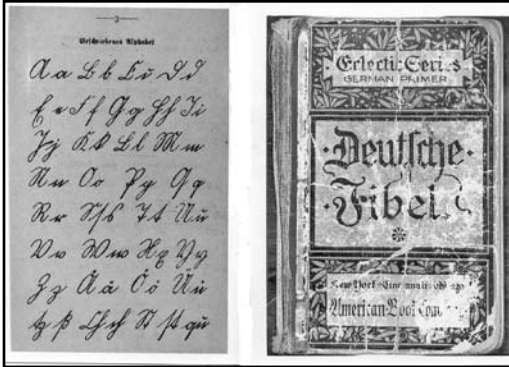 3
Geschriebenes Alphabet
A a B b C c D d
E e F f G g H h I i
J j K k L l M m
N n O o P p Q q
R r S ſ s T t U u
V v W w X x Y y
Z z Ä ä Ö ö Ü ü
tz ß Ch ch St ſt qu
Eclectic Series
GERMAN PRIMER
Deutſche
Fibel
New York Cincinnati Chicago
American Book Com